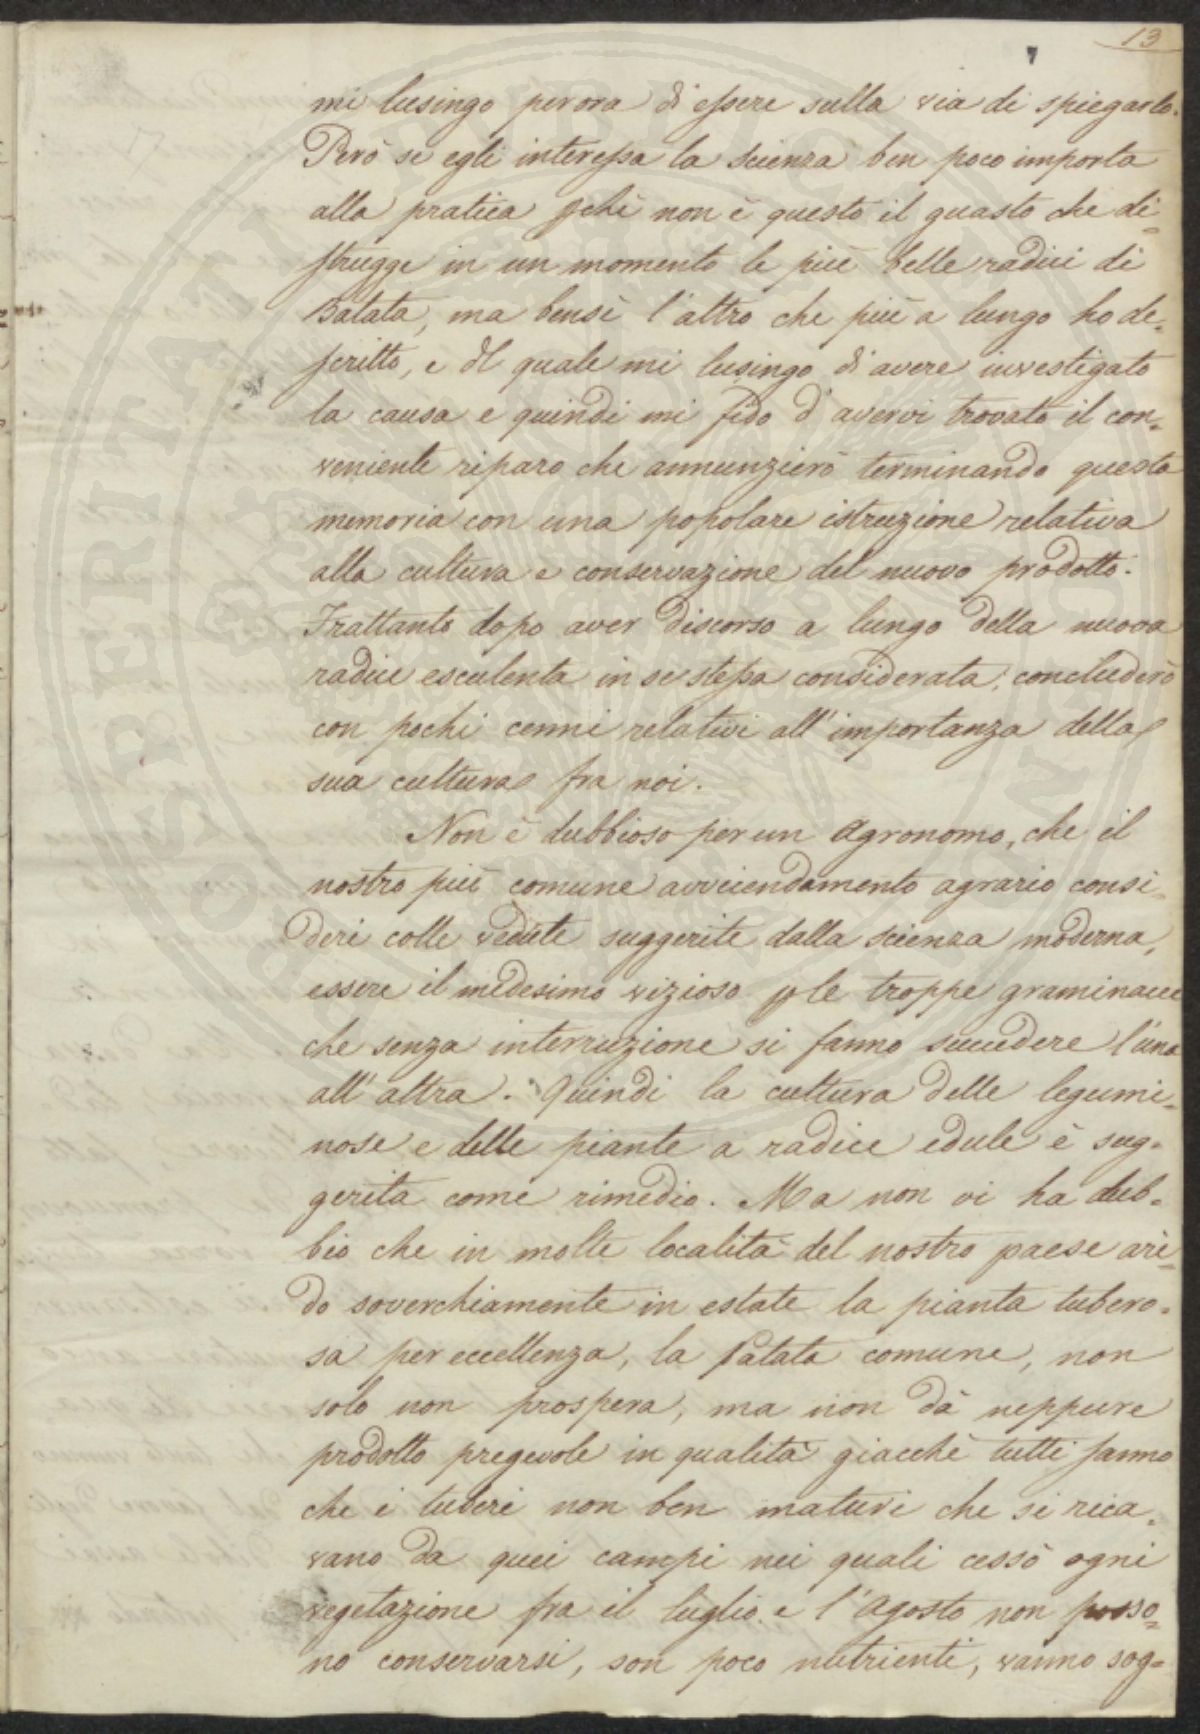 13
7
mi lusingo per ora di essere sulla via di spiegarlo.
Però se egli interessa la scienza ben poco importa
alla pratica pchè non è questo il guasto che di=
strugge in un momento le più belle radici di
Batata, ma bensì l'altro che più a lungo ho de=
scritto, e del quale mi lusingo di avere investigato
la causa e quindi mi fido d'avervi trovato il con=
veniente riparo che annunzierò terminando questa
memoria con una popolare istruzione relativa
alla cultura e conservazione del nuovo prodotto.
Frattanto dopo aver discorso a lungo della nuova
radice esculenta in se stessa considerata, concluderò
con pochi cenni relativi all'importanza della
sua cultura fra noi.
Non è dubbioso per un Agronomo, che il
nostro più comune avvicendamento agrario consi=
deri colle vedute suggerite dalla scienza moderna,
essere il medesimo vizioso p le troppe graminacee
che senza interruzione si fanno succedere l'una
all'altra. Quindi la cultura delle legumi=
nose e delle piante a radice edule è sug=
gerita come rimedio. Ma non vi ha dub=
bio che in molte località del nostro paese ari=
do soverchiamente in estate la pianta tubero=
sa per eccellenza, la Patata comune, non
solo non prospera, ma non dà neppure
prodotto pregevole in qualità giacchè tutti sanno
che i tuberi non ben maturi che si rica=
vano da quei campi nei quali cessò ogni
vegetazione fra il luglio e l'Agosto non posso=
no conservarsi, son poco nutrienti, vanno sog=
PROSPERITATI PUBLICAE